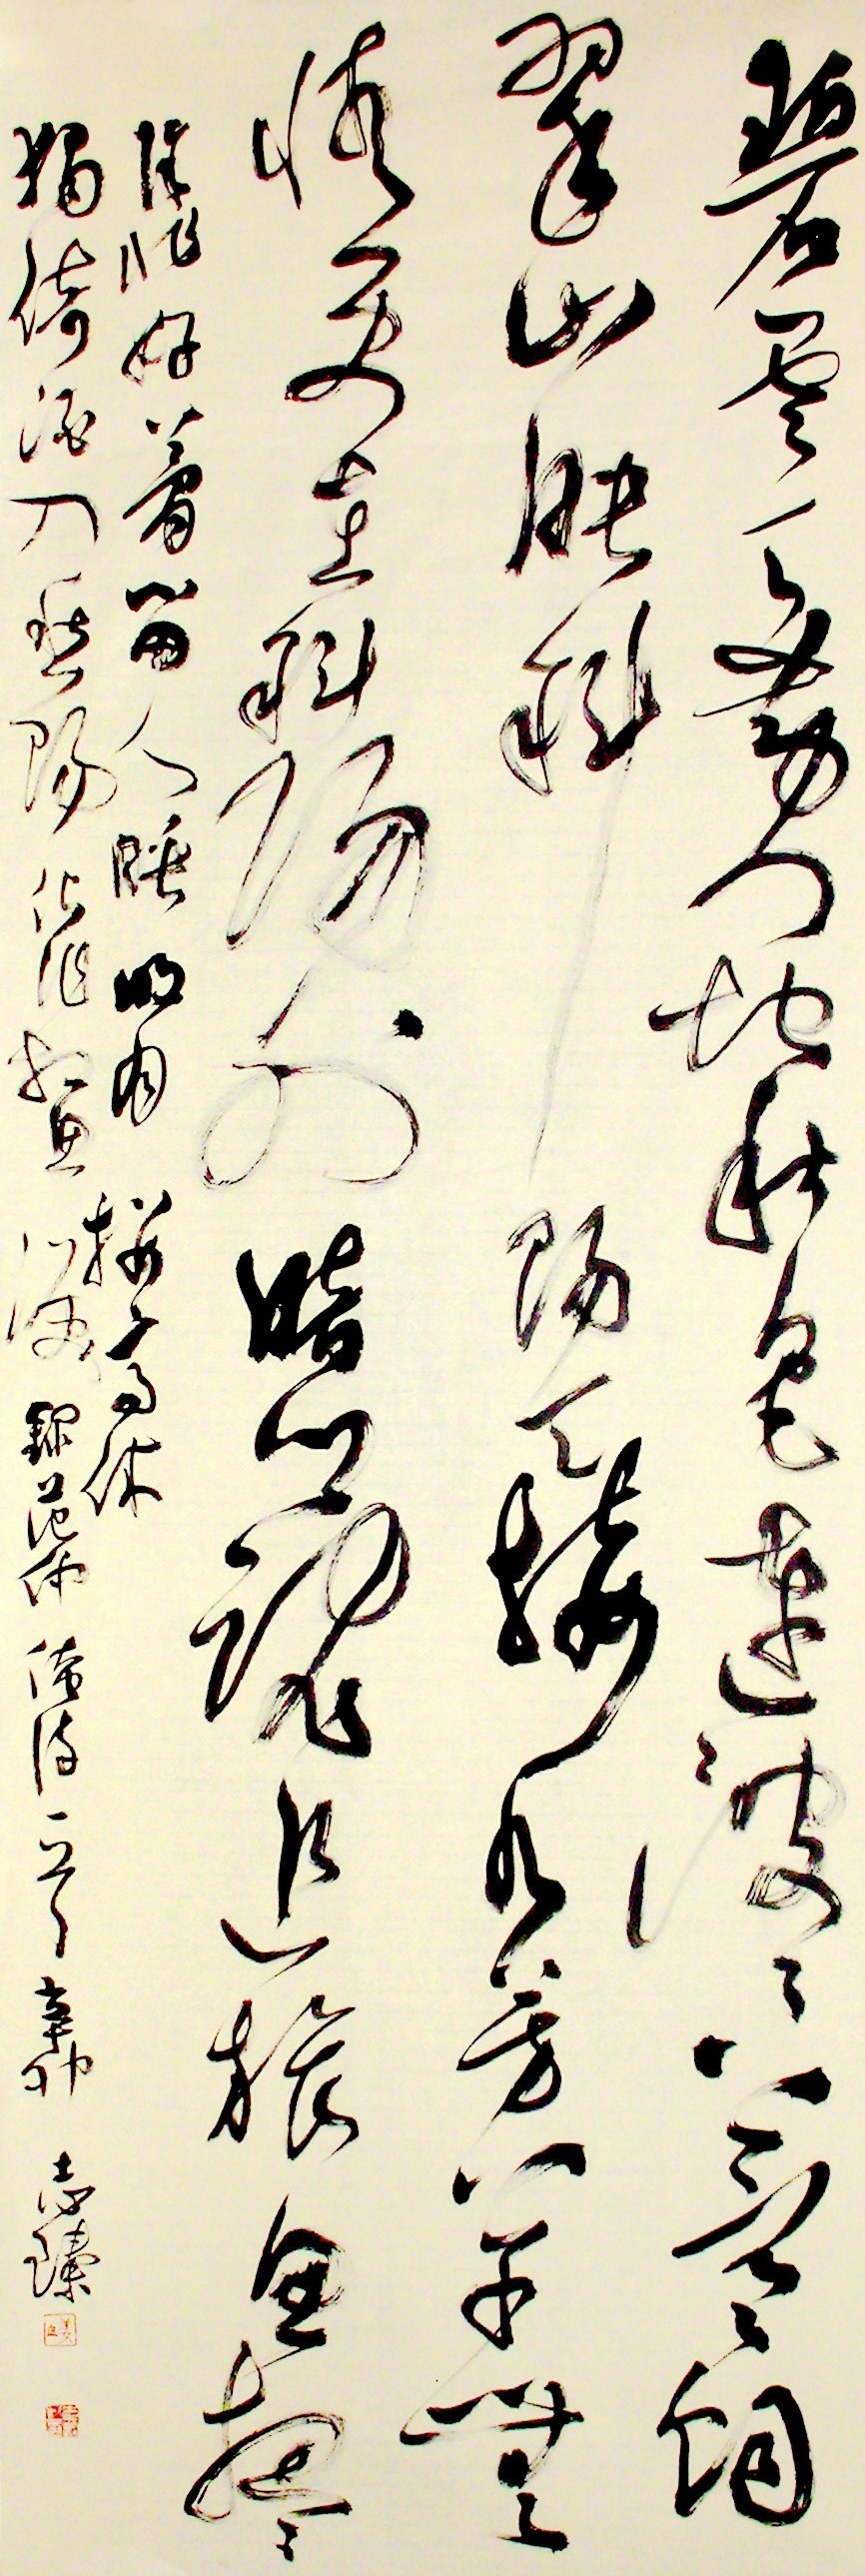 碧雲天黃葉地秋色連波〻上寒烟
翠山映斜陽天接水芳草無
情更在斜陽外黯鄉魂追旅思夜〻
除非好夢留人睡明月樓高休
獨倚酒入愁腸化作相思淚 錄范仲淹詩一首 辛卯 志